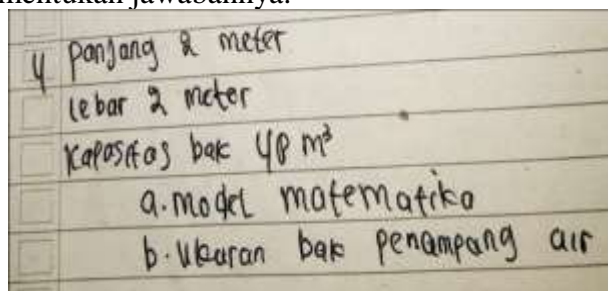 mentukan jawabannya.
4 panjang 2 meter
lebar 2 meter
Kapasitas bak 48 m³
a. model matematika
b. Ukuran bak penampang air